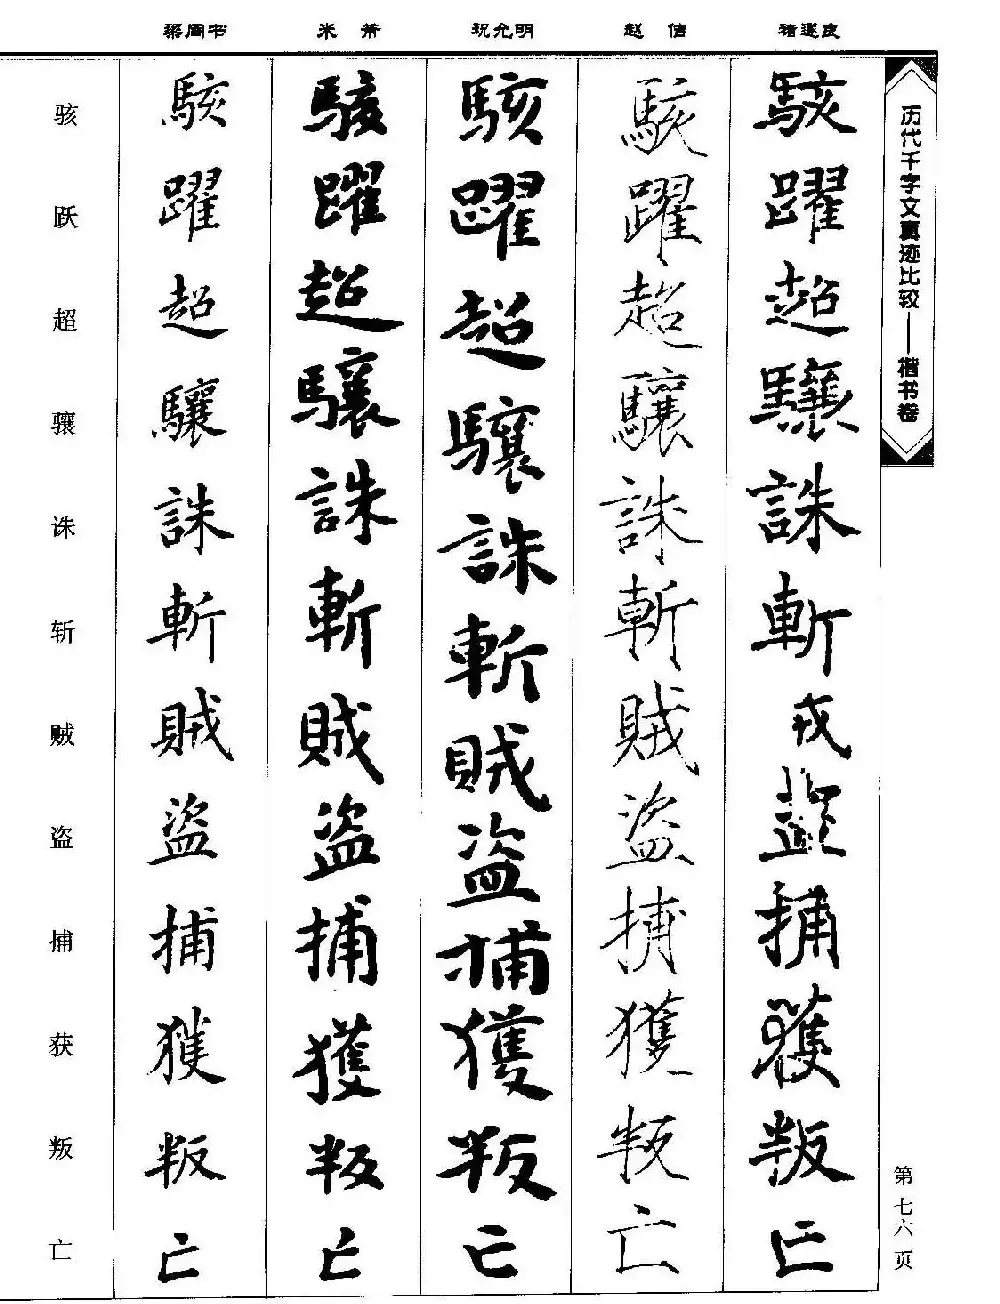 历代千字文真迹比较——楷书卷
第七六页
褚遂良
駭躍超驤誅斬戎盜捕獲叛亡
赵佶
駭躍超驤誅斬賊盜捕獲叛亡
祝允明
駭躍超驤誅斬賊盜捕獲叛亡
米芾
駭躍超驤誅斬賊盜捕獲叛亡
梁同书
駭躍超驤誅斬賊盜捕獲叛亡
骇跃超骧诛斩贼盗捕获叛亡